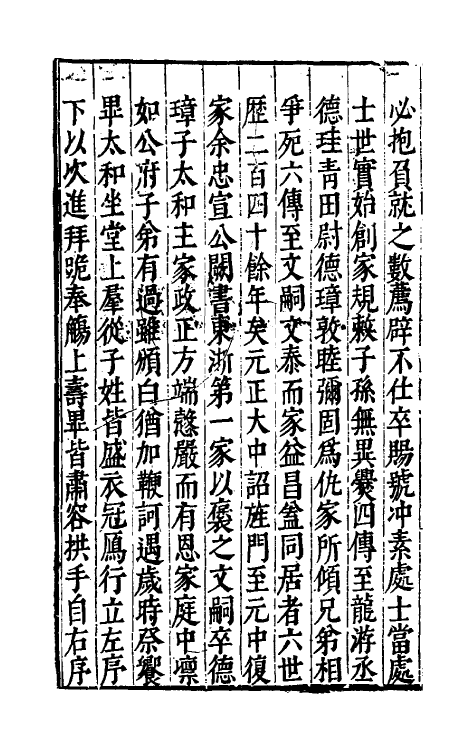 必抱負就之數薦辟不仕卒賜號冲素處士當處
士世實始創家規敕子孫無異爨四傳至龍游丞
德珪靑田尉德璋敦睦彌固爲仇家所傾兄弟相
爭死六傳至文嗣文泰而家益昌盆同居者六世
歷二百四十餘年矣元正大中詔旌門至元中復
家余忠宣公闕書東浙第一家以褒之文嗣卒德
璋子太和主家政正方端慤嚴而有恩家庭中凛
如公府子弟有過雖頒白猶加鞭訶遇歲時祭饗
畢太和坐堂上羣從子姓皆盛衣冠鴈行立左序
下以次進拜跪奉觴上壽畢皆肅容拱手自右序